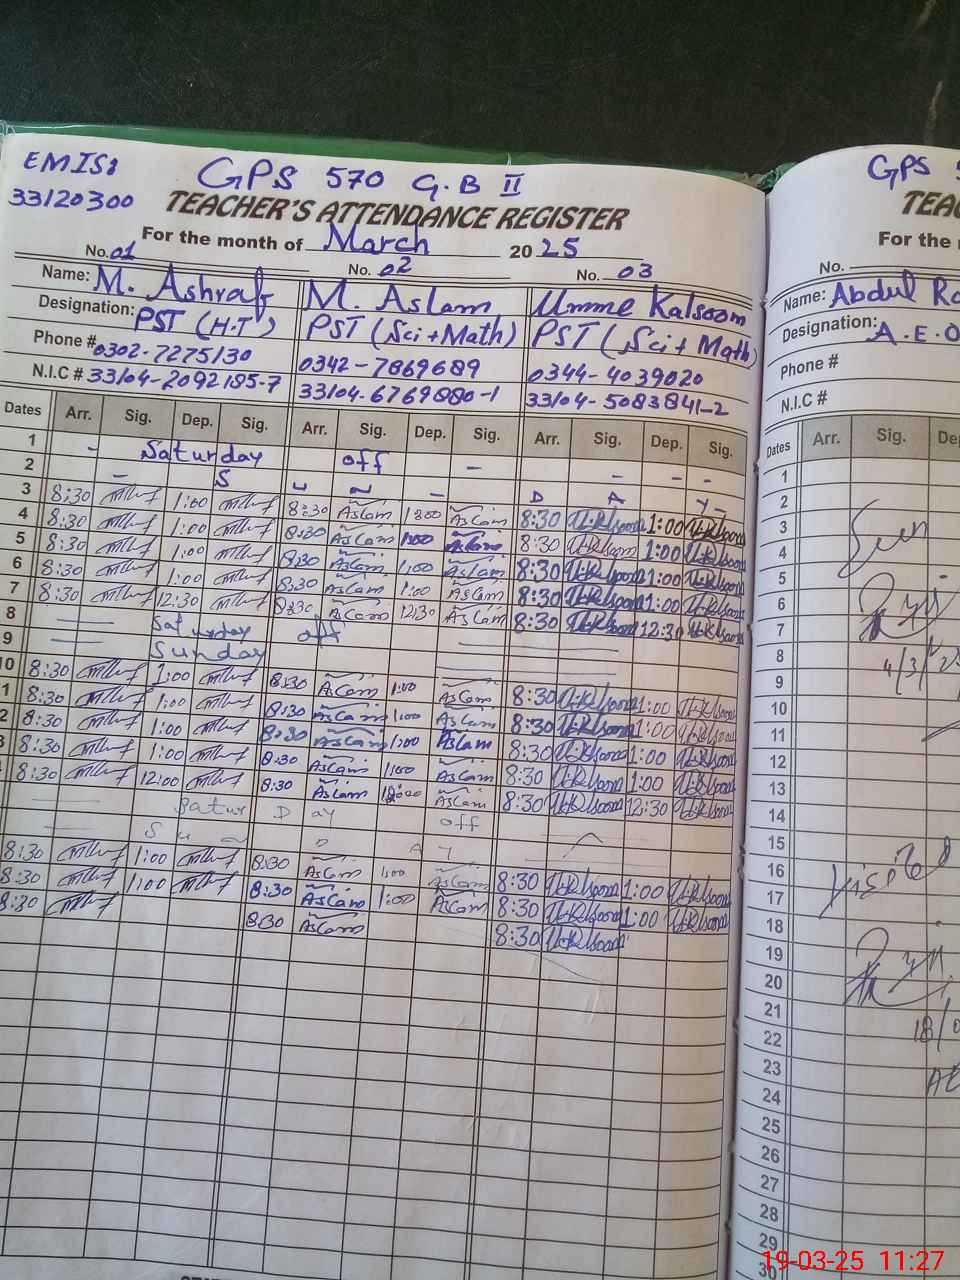 EMIS: GPS 570 G.B II
33120300 TEACHER'S ATTENDANCE REGISTER
For the month of March 2025
No. 01 No. 02 No. 03
Name: M. Ashraf M. Aslam Umme Kalsoom
Designation: PST (H.T) PST (Sci+Math) PST (Sci+Math)
Phone # 0302-7275130 0342-7869689 0344-4039020
N.I.C # 33104-2092185-7 33104-6769880-1 33104-5083841-2
Dates Arr. Sig. Dep. Sig. Arr. Sig. Dep. Sig. Arr. Sig. Dep. Sig.
1 - Saturday off -
2 - S u n - D A Y -
3 8:30 1:00 8:30 Aslam 1:00 Aslam 8:30 1:00
4 8:30 1:00 8:30 Aslam 1:00 Aslam 8:30 1:00
5 8:30 1:00 8:30 Aslam 1:00 Aslam 8:30 1:00
6 8:30 1:00 8:30 Aslam 1:00 Aslam 8:30 1:00
7 8:30 12:30 8:30 Aslam 12:30 Aslam 8:30 12:30
8 Saturday off
9 Sunday
10 8:30 1:00 8:30 Aslam 1:00 Aslam 8:30 1:00
1 8:30 1:00 8:30 Aslam 1:00 Aslam 8:30 1:00
2 8:30 1:00 8:30 Aslam 1:00 Aslam 8:30 1:00
3 8:30 1:00 8:30 Aslam 1:00 Aslam 8:30 1:00
8:30 12:00 8:30 Aslam Aslam 8:30 12:30
Satur D ay off
S u n D A Y
8:30 1:00 8:30 Aslam 1:00 Aslam 8:30 1:00
8:30 1:00 8:30 Aslam 1:00 Aslam 8:30 1:00
8:30 8:30 Aslam 8:30
GPS 5
TEAC
For the
No.
Name: Abdul Ra
Designation: A.E.O
Phone #
N.I.C #
Dates Arr. Sig. De
1
2
3
4
5
6
7
8 4/3/25
9
10
11
12
13
14
15
16
17 Visited
18
19
20
21
22 18/0
23
24 AE
25
26
27
28
29
30
19-03-25 11:27